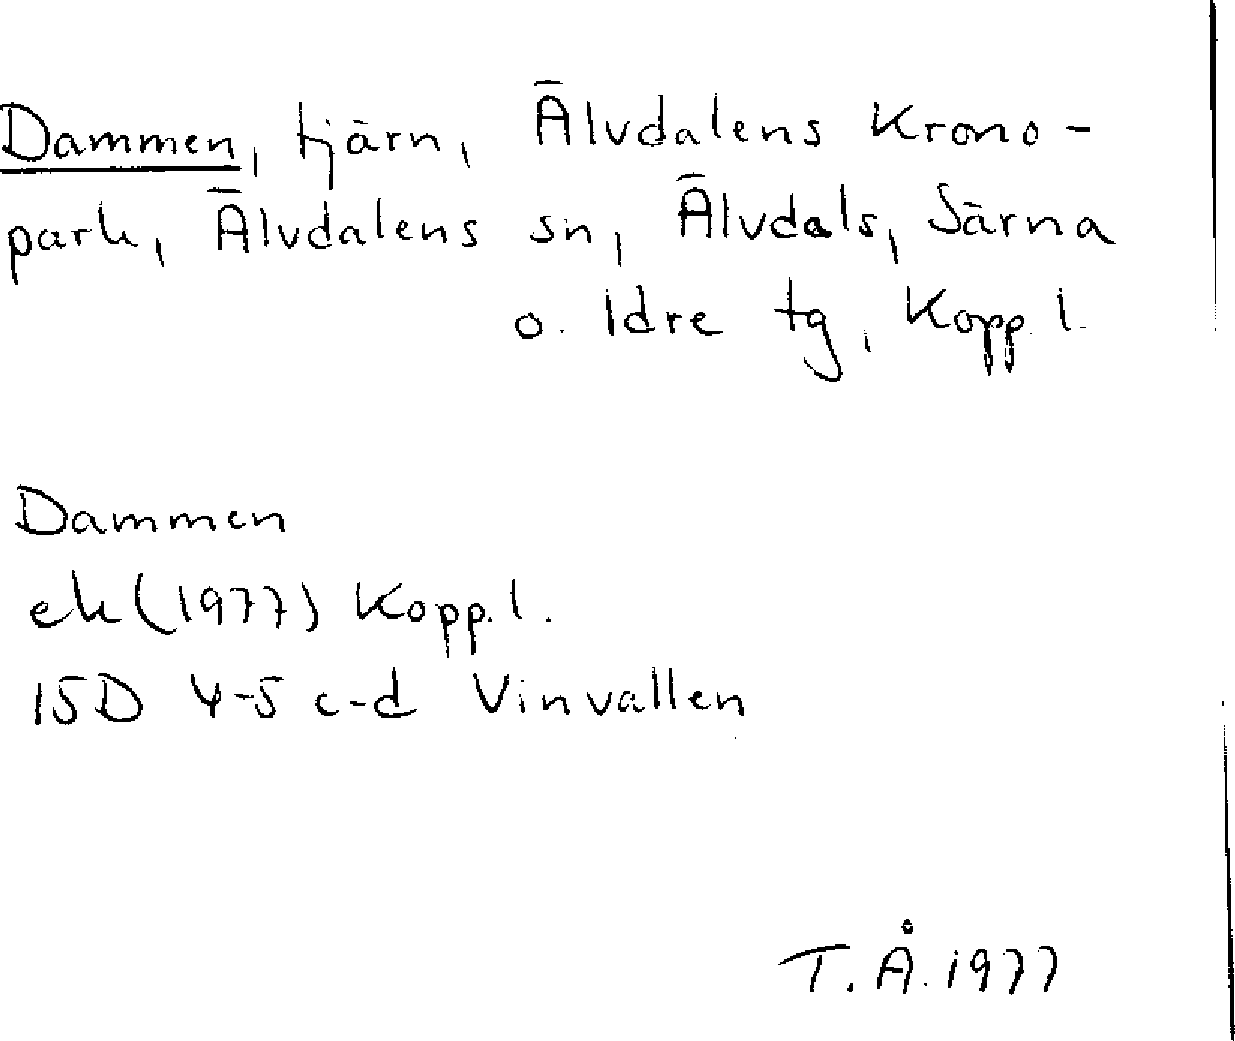 Dammen, tjärn, Älvdalens Krono-
park, Älvdalens sn, Älvdals, Särna
o. Idre tg, Kopp. l.
Dammen
ek (1977) Kopp. l.
15D 4-5 c-d Vinvallen
T. Å. 1977